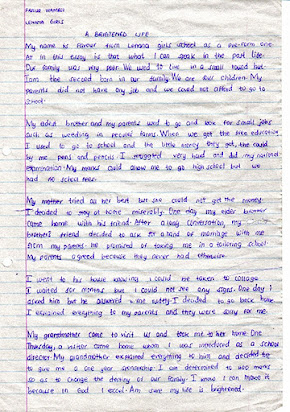 LENANA GIRLS
A BRIGHTENED LIFE
My name is from Lenana girls school as a one-form one
As in this essay is that what I can speak in the past life.
Our family was very poor. We used to live in a small house but
I am the second born in our family. We are four children. My
parents did not have any job and we could not afford to go to
school.
My eldest brother and my parents used to go and look for casual jobs
such as weeding in peoples farms. When we got the free education
I used to go to school and the little money they get, she could
buy me pens and pencils. I struggled very hard and did my national
examination. My marks could allow me to go high school but we
had no school fees.
My mother tried at her best but she could not get the money.
I decided to stay at home miserably. One day my elder brother
came home with his friend. After a long conversation, my
brother's friend decided to ask for a hand of marriage with me
from my parents. He promised of taking me in a tailoring school.
My parents agreed because they never had otherwise.
I went to his house knowing I could be taken to college
I waited for months but I could not see any signs. One day I
asked him but he answered me rudely. I decided to go back home
I explained everything to my parents and they were sorry for me.
My grandmother came to visit us and took me to her home. One
Thursday, a visitor came home whom I was introduced as a school
director. My grandmother explained everything to him and decided to
to give me a one year sponsorship. I am determined to work
so as to change the destiny of our family. I know I can make it
because in God I excel. Am sure my life is brightened.